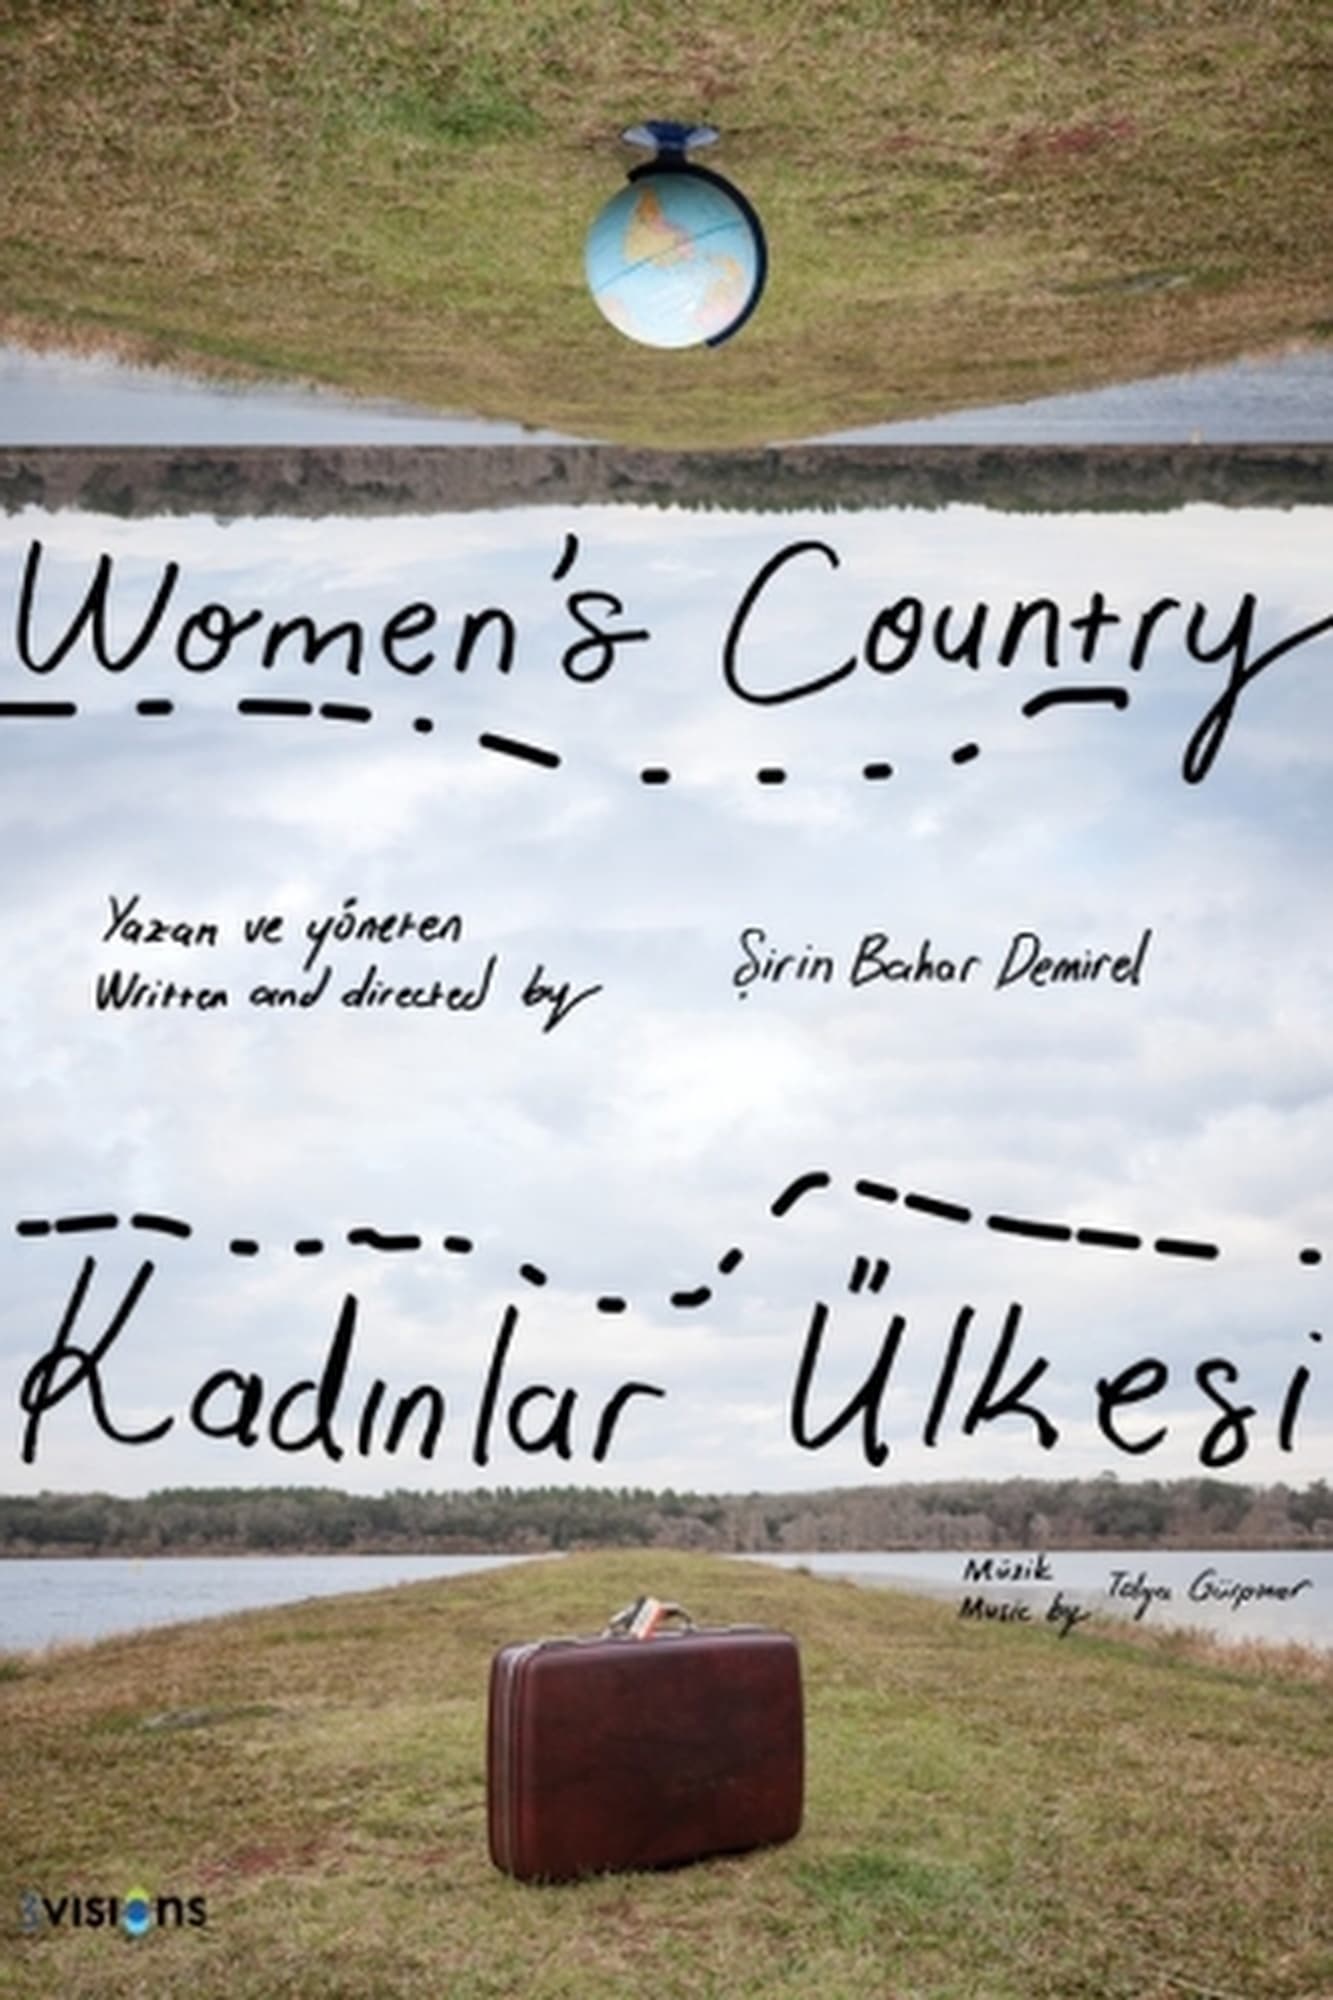 Women's Country
Yazan ve yöneten
Written and directed by
Şirin Bahar Demirel
Kadınlar Ülkesi
Müzik
Music by
Tolga Gürpınar
3visions